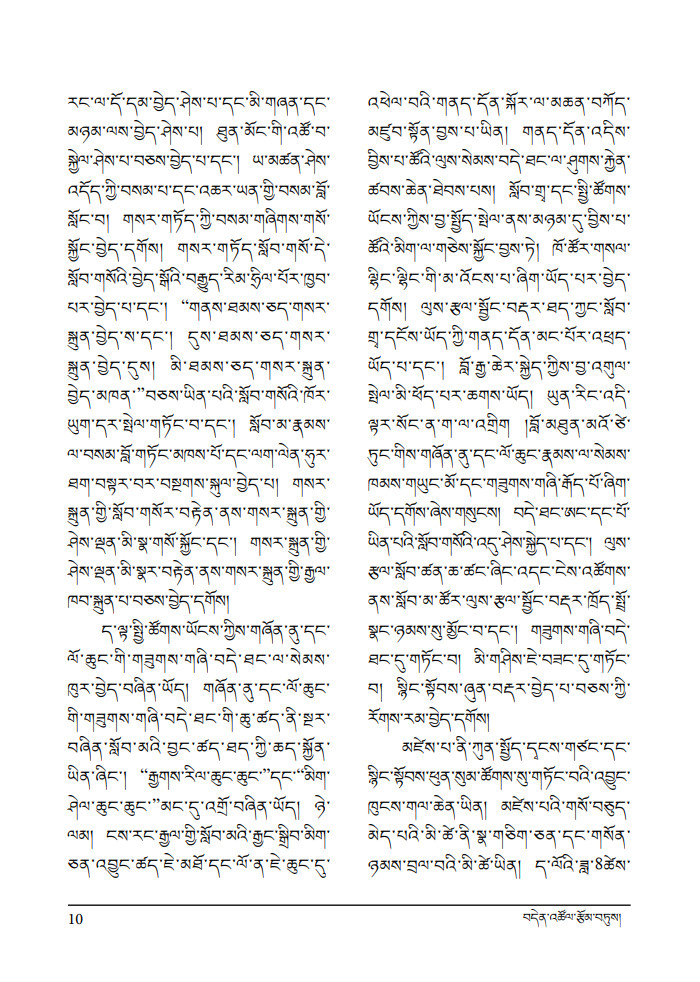 རང་ལ་དོ་དམ་བྱེད་ཤེས་པ་དང་མི་གཞན་དང་
མཉམ་ལས་བྱེད་ཤེས་པ། ཐུན་མོང་གི་འཚོ་བ་
སྐྱེལ་ཤེས་པ་བཅས་བྱེད་པ་དང་། ཡ་མཚན་ཤེས་
འདོད་ཀྱི་བསམ་པ་དང་འཆར་ཡན་གྱི་བསམ་བློ་
སློང་བ། གསར་གཏོད་ཀྱི་བསམ་གཞིགས་གསོ་
སྐྱོང་བྱེད་དགོས། གསར་གཏོད་སློབ་གསོ་དེ་
སློབ་གསོའི་བྱེད་སྒོའི་བརྒྱུད་རིམ་ཧྲིལ་པོར་ཁྱབ་
པར་བྱེད་པ་དང་། “གནས་ཐམས་ཅད་གསར་
སྐྲུན་བྱེད་ས་དང་། དུས་ཐམས་ཅད་གསར་
སྐྲུན་བྱེད་དུས། མི་ཐམས་ཅད་གསར་སྐྲུན་
བྱེད་མཁན་”བཅས་ཡིན་པའི་སློབ་གསོའི་ཁོར་
ཡུག་དར་སྤེལ་གཏོང་བ་དང་། སློབ་མ་རྣམས་
ལ་བསམ་བློ་གཏོང་མཁས་པོ་དང་ལག་ལེན་ཧུར་
ཐག་བསྟར་བར་བསྔགས་སྐུལ་བྱེད་པ། གསར་
སྐྲུན་གྱི་སློབ་གསོར་བརྟེན་ནས་གསར་སྐྲུན་གྱི་
ཤེས་ལྡན་མི་སྣ་གསོ་སྐྱོང་དང་། གསར་སྐྲུན་གྱི་
ཤེས་ལྡན་མི་སྣར་བརྟེན་ནས་གསར་སྐྲུན་གྱི་རྒྱལ་
ཁབ་སྐྲུན་པ་བཅས་བྱེད་དགོས།
ད་ལྟ་སྤྱི་ཚོགས་ཡོངས་ཀྱིས་གཞོན་ནུ་དང་
ལོ་ཆུང་གི་གཟུགས་གཞི་བདེ་ཐང་ལ་སེམས་
ཁུར་བྱེད་བཞིན་ཡོད། གཞོན་ནུ་དང་ལོ་ཆུང་
གི་གཟུགས་གཞི་བདེ་ཐང་གི་ཆུ་ཚད་ནི་སྔར་
བཞིན་སློབ་མའི་བྱང་ཚད་ཐད་ཀྱི་ཆད་སྐྱོན་
ཡིན་ཞིང་། “རྒྱགས་རིལ་ཆུང་ཆུང་”དང་“མིག་
ཤེལ་ཆུང་ཆུང་”མང་དུ་འགྲོ་བཞིན་ཡོད། ཉེ་
ལམ། ངས་རང་རྒྱལ་གྱི་སློབ་མའི་རྒྱང་སྒྲིབ་མིག་
ཅན་འབྱུང་ཚད་ཇེ་མཐོ་དང་ལོ་ན་ཇེ་ཆུང་དུ་
འཕེལ་བའི་གནད་དོན་སྐོར་ལ་མཆན་བཀོད་
མཛུབ་སྟོན་བྱས་པ་ཡིན། གནད་དོན་འདིས་
བྱིས་པ་ཚོའི་ལུས་སེམས་བདེ་ཐང་ལ་ཤུགས་རྐྱེན་
ཚབས་ཆེན་ཐེབས་པས། སློབ་གྲྭ་དང་སྤྱི་ཚོགས་
ཡོངས་ཀྱིས་བྱ་སྤྱོད་སྤེལ་ནས་མཉམ་དུ་བྱིས་པ་
ཚོའི་མིག་ལ་གཅེས་སྐྱོང་བྱས་ཏེ། ཁོ་ཚོར་གསལ་
ལྷིང་ལྷིང་གི་མ་འོངས་པ་ཞིག་ཡོད་པར་བྱེད་
དགོས། ལུས་རྩལ་སྦྱོང་བརྡར་ཐད་ཀྱང་སློབ་
གྲྭ་དངོས་ཡོད་ཀྱི་གནད་དོན་མང་པོར་འཕྲད་
ཡོད་པ་དང་། བློ་རྒྱ་ཆེར་སྐྱེད་ཀྱིས་བྱ་འགུལ་
སྤེལ་མི་ཕོད་པར་ཆགས་ཡོད། ཡུན་རིང་འདི་
ལྟར་སོང་ན་ག་ལ་འགྲིག །བློ་མཐུན་མའོ་ཙེ་
ཏུང་གིས་གཞོན་ནུ་དང་ལོ་ཆུང་རྣམས་ལ་སེམས་
ཁམས་གཡུང་མོ་དང་གཟུགས་གཞི་རྒོད་པོ་ཞིག་
ཡོད་དགོས་ཞེས་གསུངས། བདེ་ཐང་ཨང་དང་པོ་
ཡིན་པའི་སློབ་གསོའི་འདུ་ཤེས་སྐྱེད་པ་དང་། ལུས་
རྩལ་སློབ་ཚན་ཆ་ཚང་ཞིང་འདང་ངེས་འཚོགས་
ནས་སློབ་མ་ཚོར་ལུས་རྩལ་སྦྱོང་བརྡར་ཁྲོད་སྤྲོ་
སྣང་ཉམས་སུ་མྱོང་བ་དང་། གཟུགས་གཞི་བདེ་
ཐང་དུ་གཏོང་བ། མི་གཤིས་ཇེ་བཟང་དུ་གཏོང་
བ། སྙིང་སྟོབས་ཞུན་བརྡར་བྱེད་པ་བཅས་ཀྱི་
རོགས་རམ་བྱེད་དགོས།
མཛེས་པ་ནི་ཀུན་སྤྱོད་དྭངས་གཙང་དང་
སྙིང་སྟོབས་ཕུན་སུམ་ཚོགས་སུ་གཏོང་བའི་འབྱུང་
ཁུངས་གལ་ཆེན་ཡིན། མཛེས་པའི་གསོ་བཅུད་
མེད་པའི་མི་ཚེ་ནི་སྣ་གཅིག་ཅན་དང་གསོན་
ཉམས་བྲལ་བའི་མི་ཚེ་ཡིན། ད་ལོའི་ཟླ་8ཚེས་
10
བདེན་འཚོལ་རྩོམ་བཏུས།